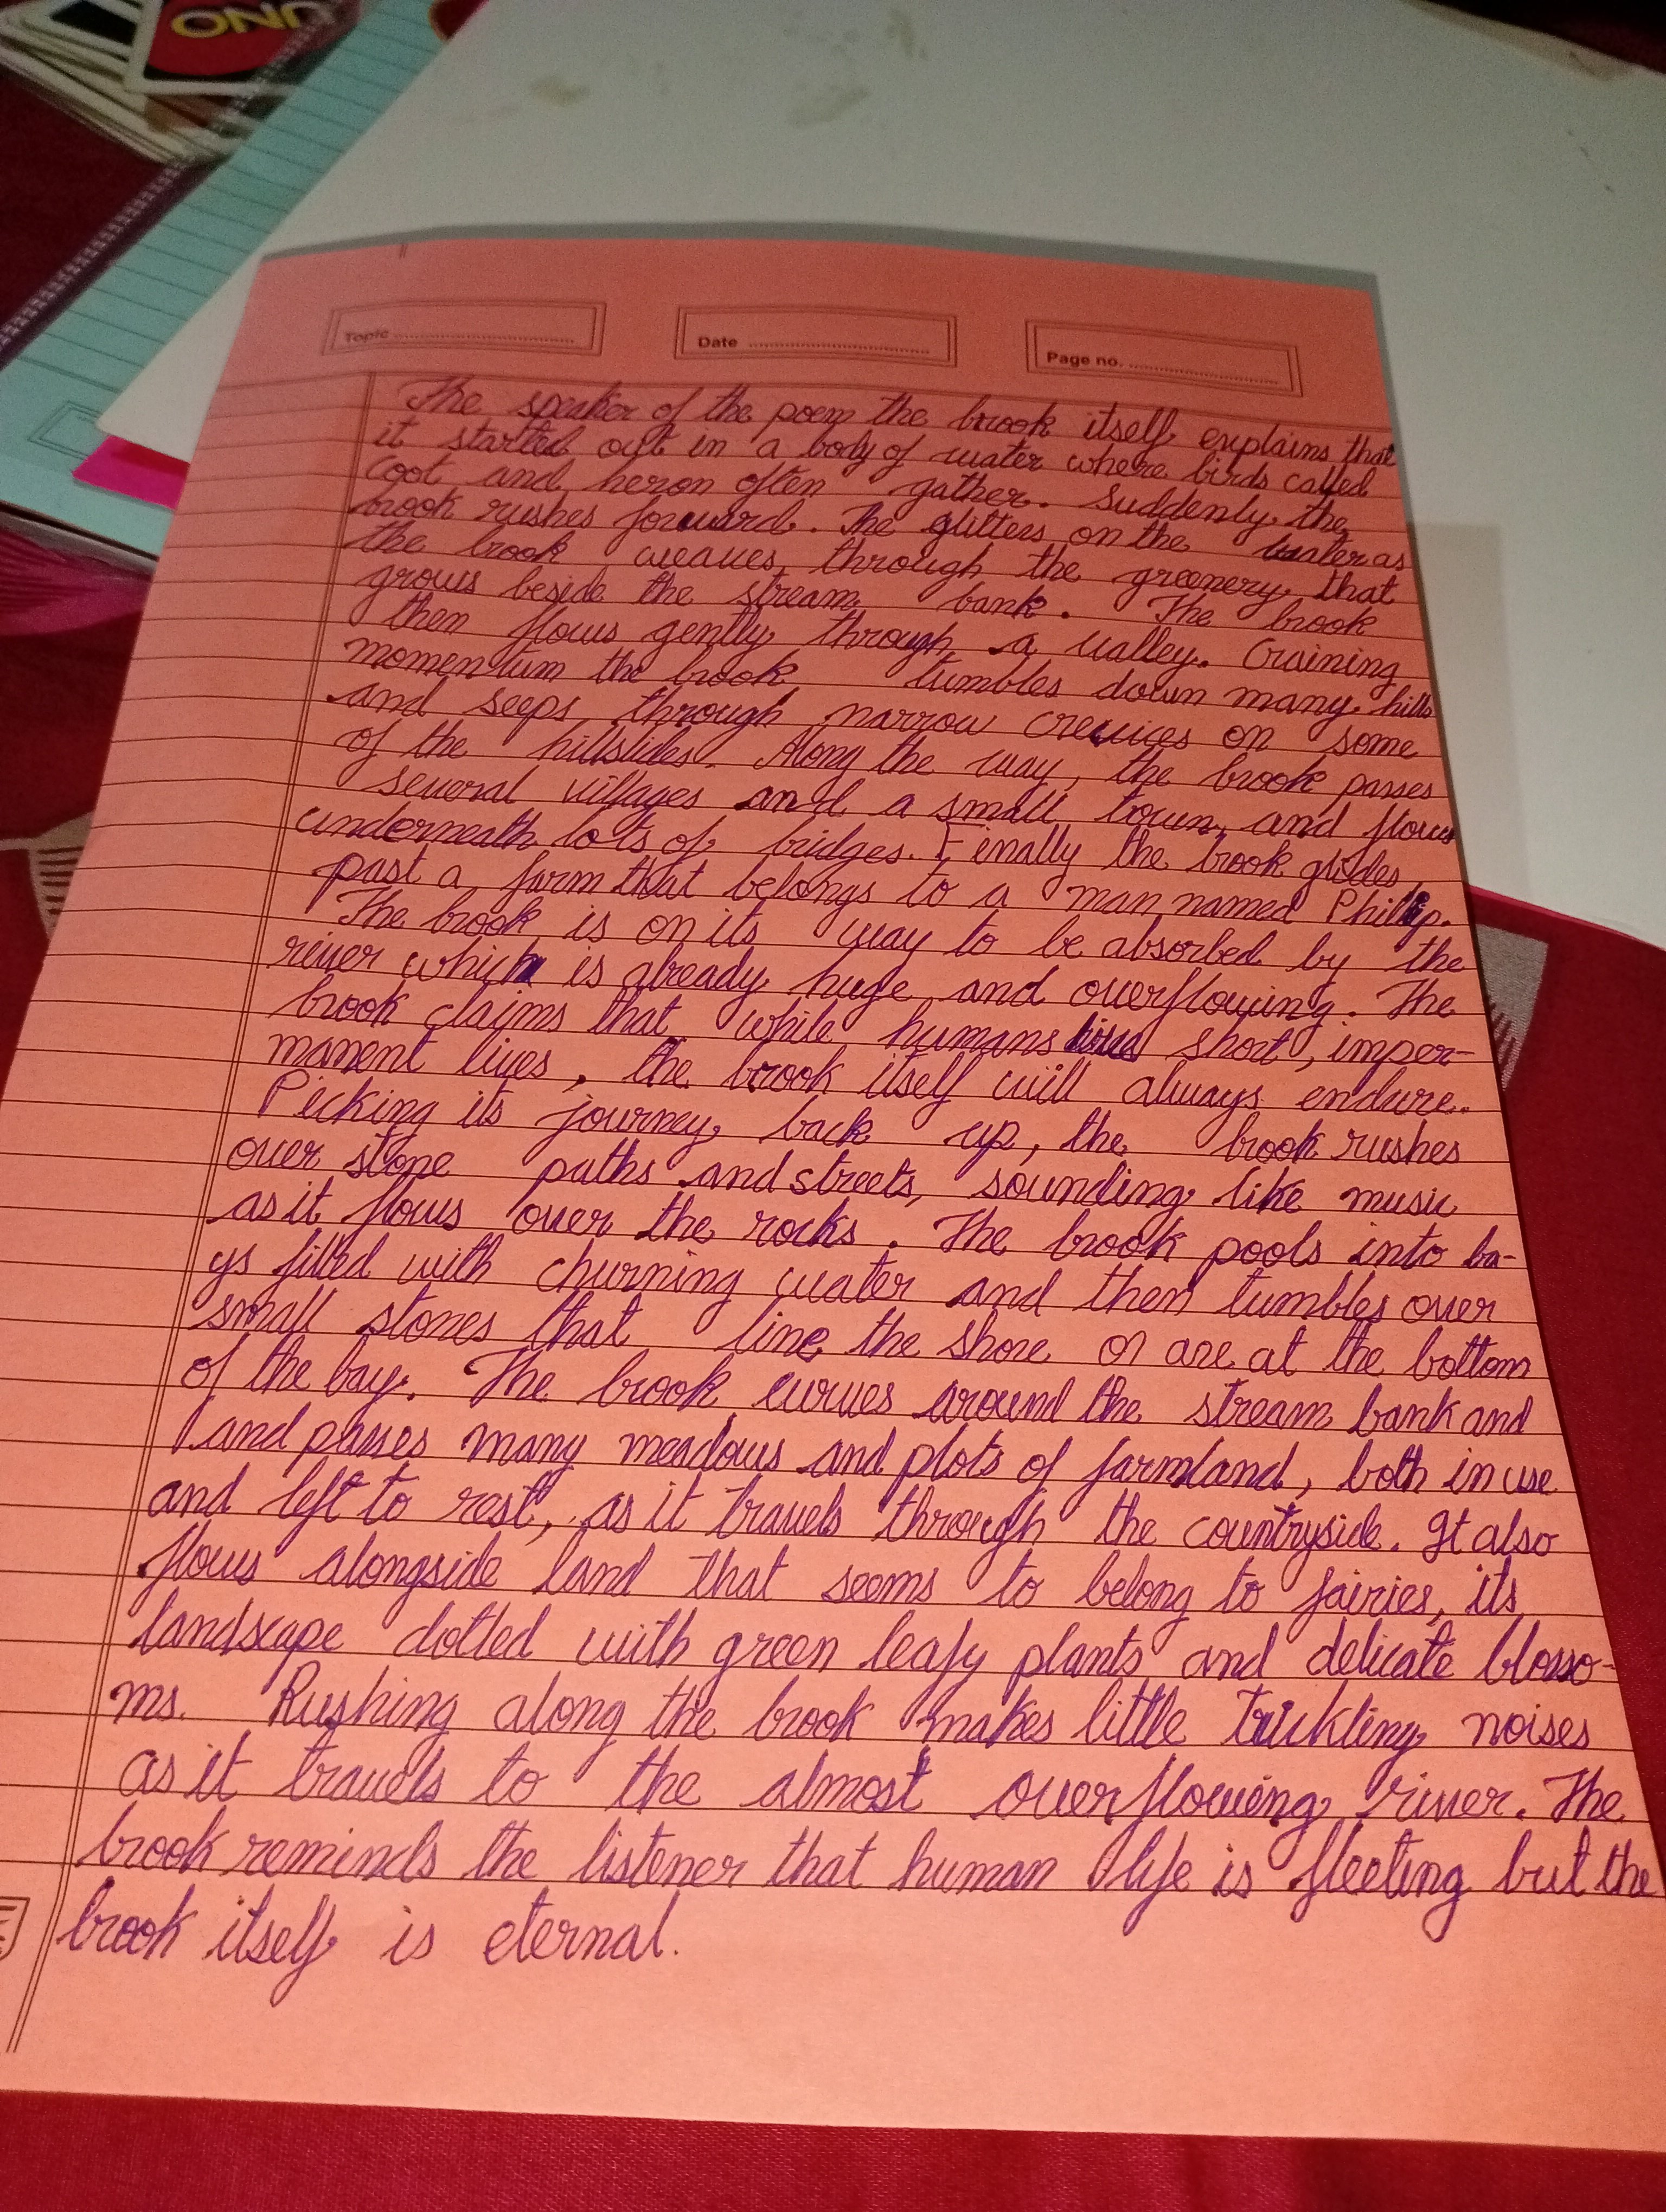 UNO
Topic
Date
Page no.
The speaker of the poem the brook itself explains that
it started out in a body of water where birds called
coot and heron often gather. Suddenly the
brook rushes forward. The glitters on the water as
the brook weaves through the greenery that
grows beside the stream bank. The brook
then flows gently through a valley. Graining
momentum the brook tumbles down many hills
and seeps through narrow crevices on some
of the hillslides. Along the way, the brook passes
several villages and a small town and flows
underneath lots of bridges. Finally the brook glides
past a farm that belongs to a man named Phillip.
The brook is on its way to be absorbed by the
river which is already huge and overflowing. The
brook claims that while humans lives short, imper-
manent lives, the brook itself will always endure.
Picking its journey back up, the brook rushes
over stone paths and streets, sounding like music
as it flows over the rocks. The brook pools into ba-
ys filled with churning water and then tumbles over
small stones that line the shore or are at the bottom
of the bay. The brook curves around the stream bank and
and passes many meadows and plots of farmland, both in use
and left to rest, as it travels through the countryside. It also
flows alongside land that seems to belong to fairies, its
landscape dotted with green leafy plants and delicate blosso-
ms. Rushing along the brook makes little trickling noises
as it travels to the almost overflowing river. The
brook reminds the listener that human life is fleeting but the
brook itself is eternal.